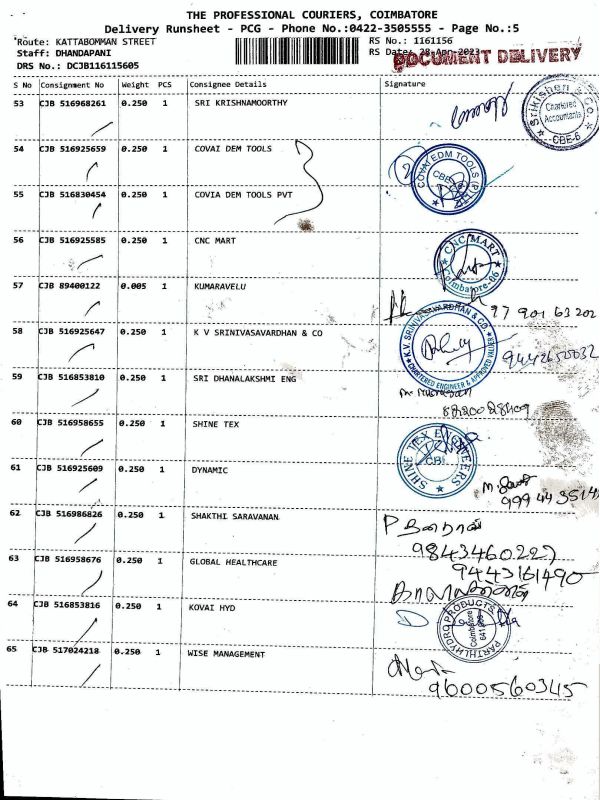 THE PROFESSIONAL COURIERS, COIMBATORE
Delivery Runsheet - PCG - Phone No.:0422-3505555 - Page No.:5
Route: KATTABOMMAN STREET
RS No.: 1161156
Staff: DHANDAPANI
RS Date: 28-Apr-2023
DOCUMENT DELIVERY
DRS No.: DCJB116115605
S No Consignment No Weight PCS Consignee Details Signature
53 CJB 516968261 0.250 1 SRI KRISHNAMOORTHY
Srikishen & Co.
Chartered
Accountants
CBE-6
54 CJB 516925659 0.250 1 COVAI DEM TOOLS
COVAI EDM TOOLS
55 CJB 516830454 0.250 1 COVIA DEM TOOLS PVT
56 CJB 516925585 0.250 1 CNC MART
CNC MART
Coimbatore-06
57 CJB 89400122 0.005 1 KUMARAVELU
97 901 63 202
58 CJB 516925647 0.250 1 K V SRINIVASAVARDHAN & CO
K.V. SRINIVASAVARDHAN & CO.
CHARTERED ENGINEER & APPROVED VALUER
9442650032
59 CJB 516853810 0.250 1 SRI DHANALAKSHMI ENG
60 CJB 516958655 0.250 1 SHINE TEX
SHINE TEX ENGINEERS
61 CJB 516925609 0.250 1 DYNAMIC
62 CJB 516986826 0.250 1 SHAKTHI SARAVANAN
9843460227
63 CJB 516958676 0.250 1 GLOBAL HEALTHCARE
9443161490
64 CJB 516853816 0.250 1 KOVAI HYD
HYDRO PRODUCTS
Coimbatore
65 CJB 517024218 0.250 1 WISE MANAGEMENT
9600560345